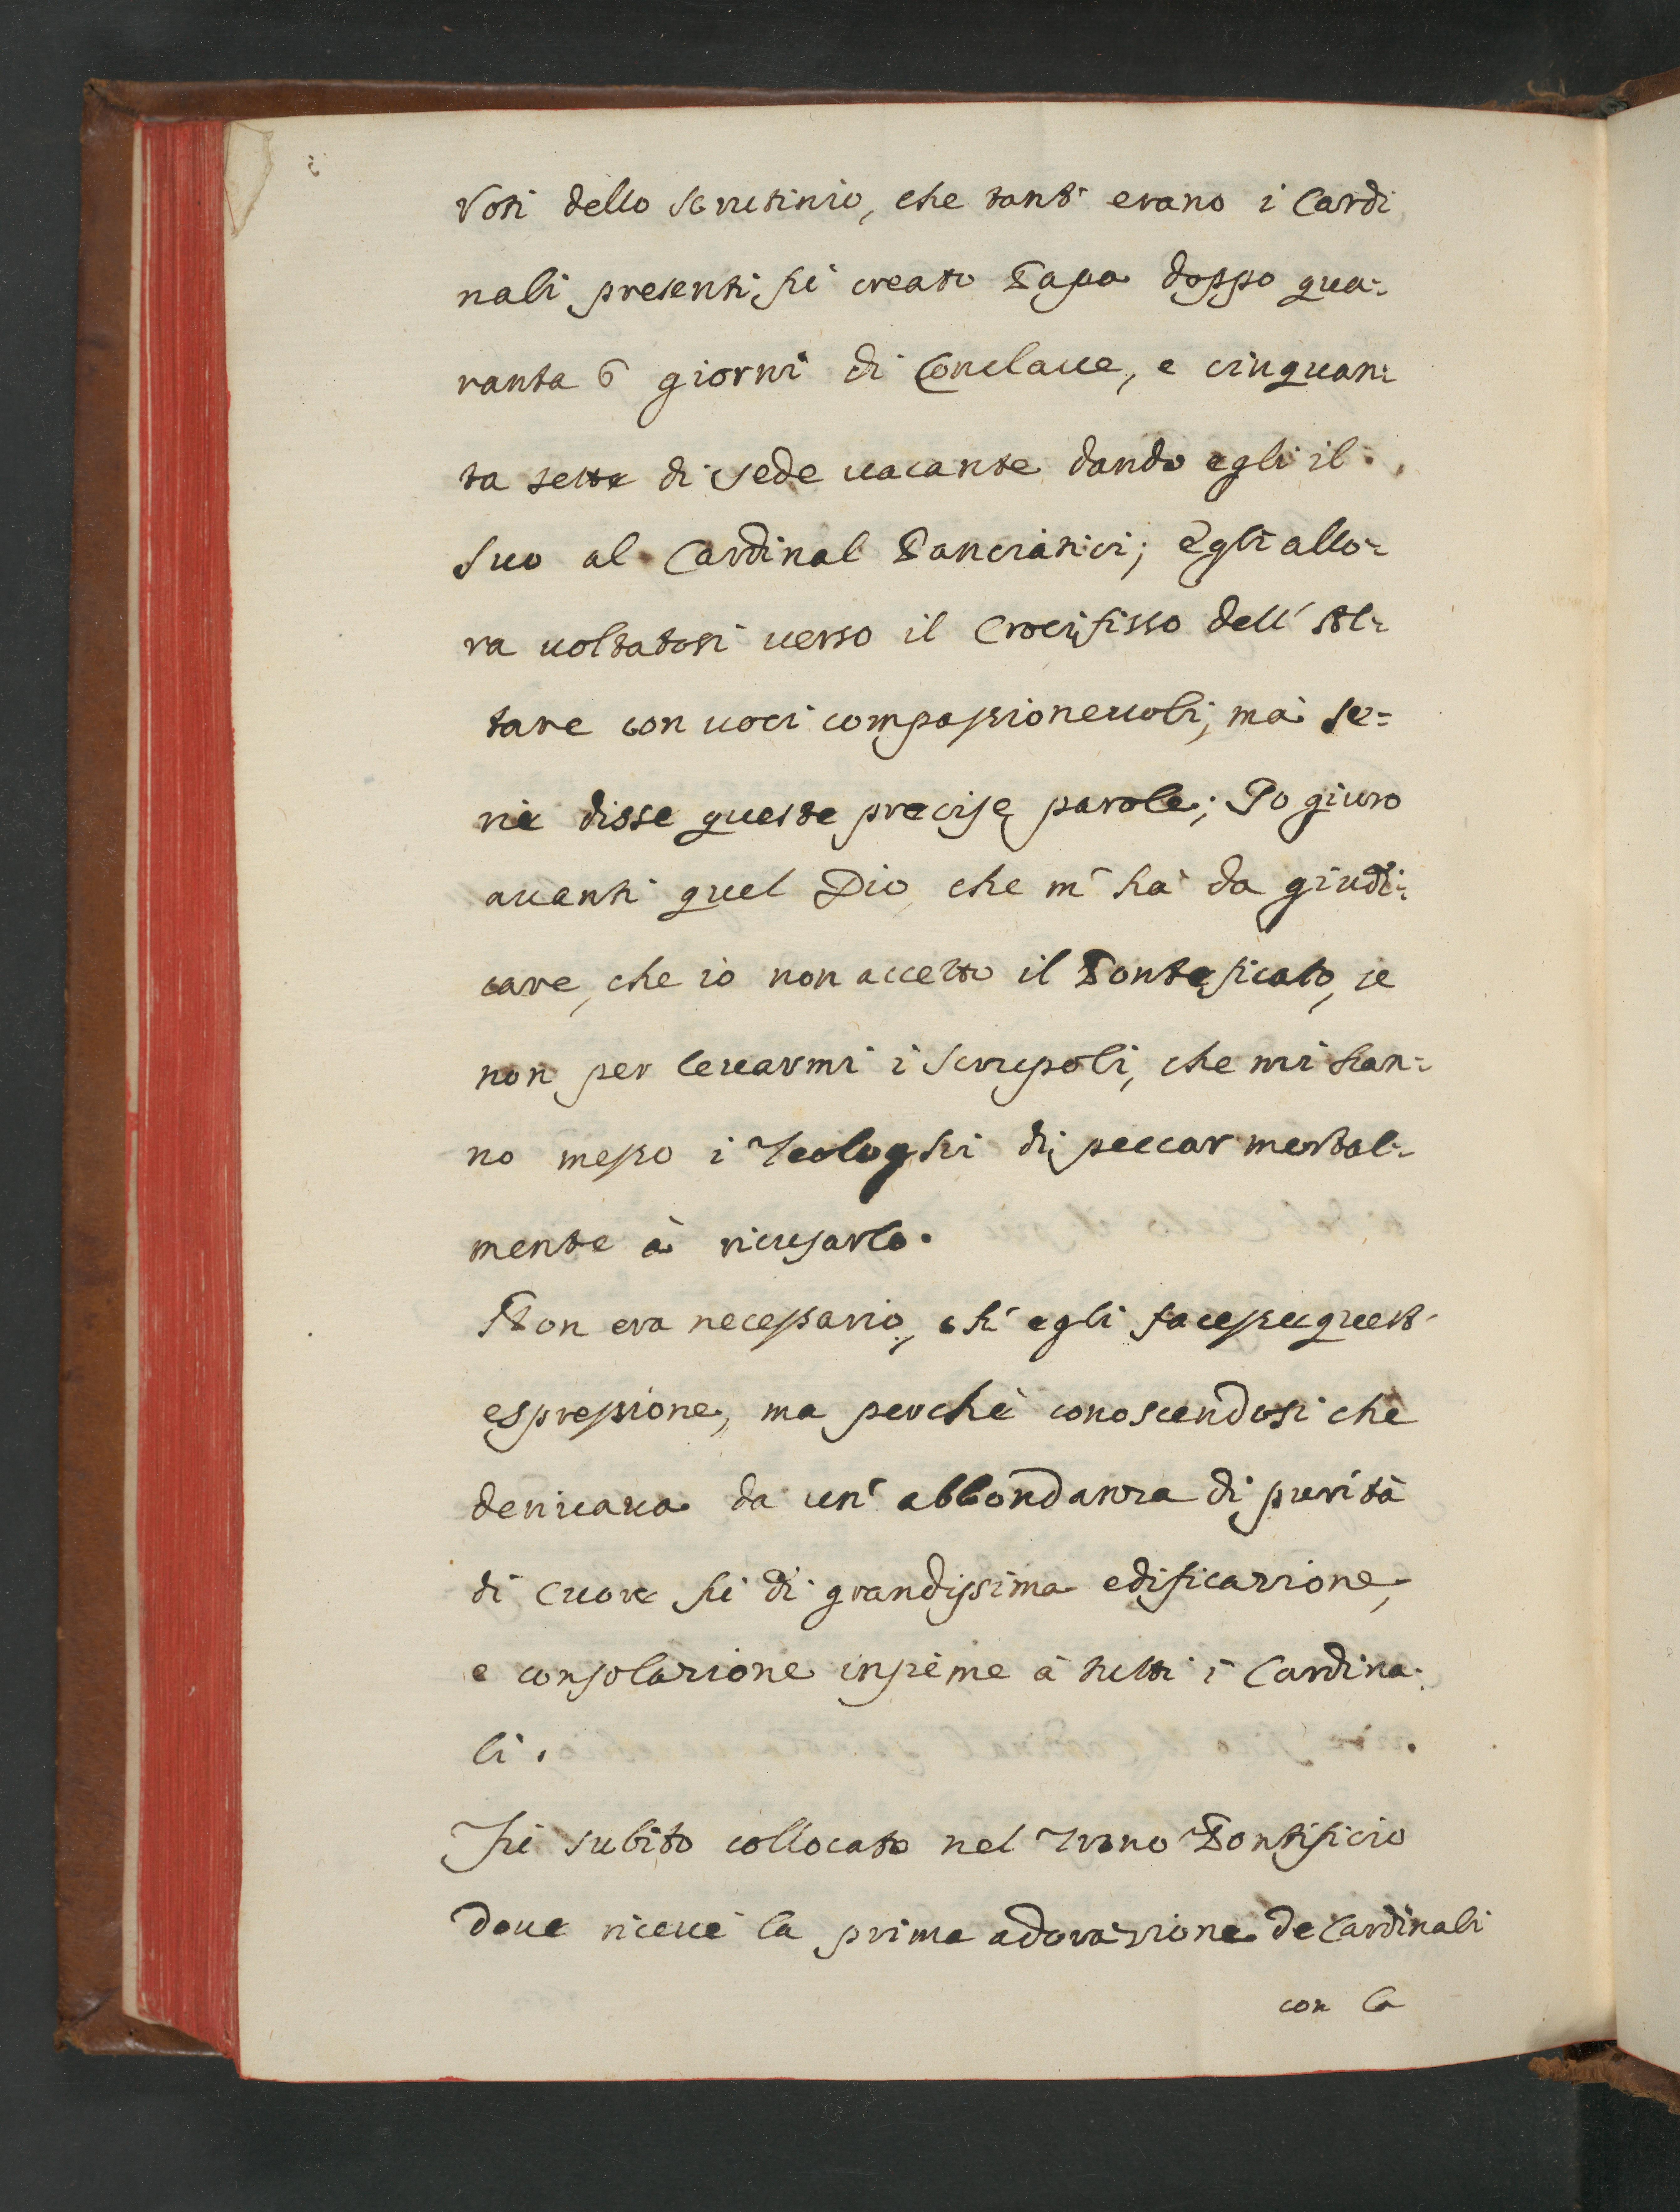 Voti dello scrutinio, che tanti erano i Cardi
nali presenti, fù creato Papa doppo qua=
ranta 6 giorni di Conclaue, e cinquan=
ta sette di sede uacante dando egli il
suo al Cardinal Panciatici; Egli allo=
ra uoltatosi uerso il Crocifisso dell' Al=
tare con uoci compassioneuoli, mà se=
rie disse queste precise parole; Io giuro
auanti quel Dio, che m' hà da giudi=
care, che io non accetto il Ponteficato, se
non per leuarmi i scrupoli, che mi han=
no messo i Teologhi di peccar mortal=
mente à ricusarlo.
Non era necessario, ch' egli facesse quest'
espressione, ma perche conoscendosi che
deriuaua da un' abbondanza di purità
di Cuore fù di grandissima edificazione,
e consolazione insieme à tutti i Cardina=
li.
Fù subito collocato nel Trono Pontificio
doue riceuè la prima adorazione de Cardinali
con la